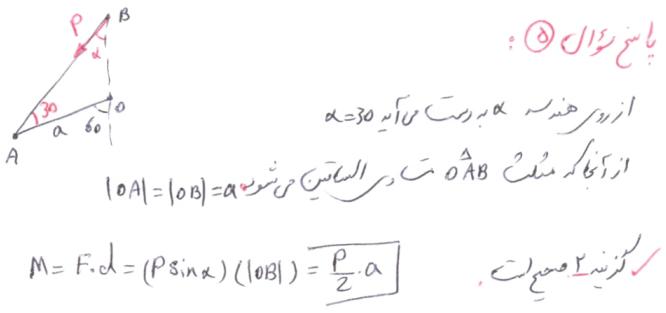 پاسخ سؤال ۵ :
B
P
α
30
O
a
60
A
از روی هندسه α بدست می آید α=30
از آنجا که مثلث OAB متساوی الساقین می شود |OA|=|OB|=a
M = F.d = (P sinα)(|OB|) = P/2 . a
گزینه ۲ صحیح است.